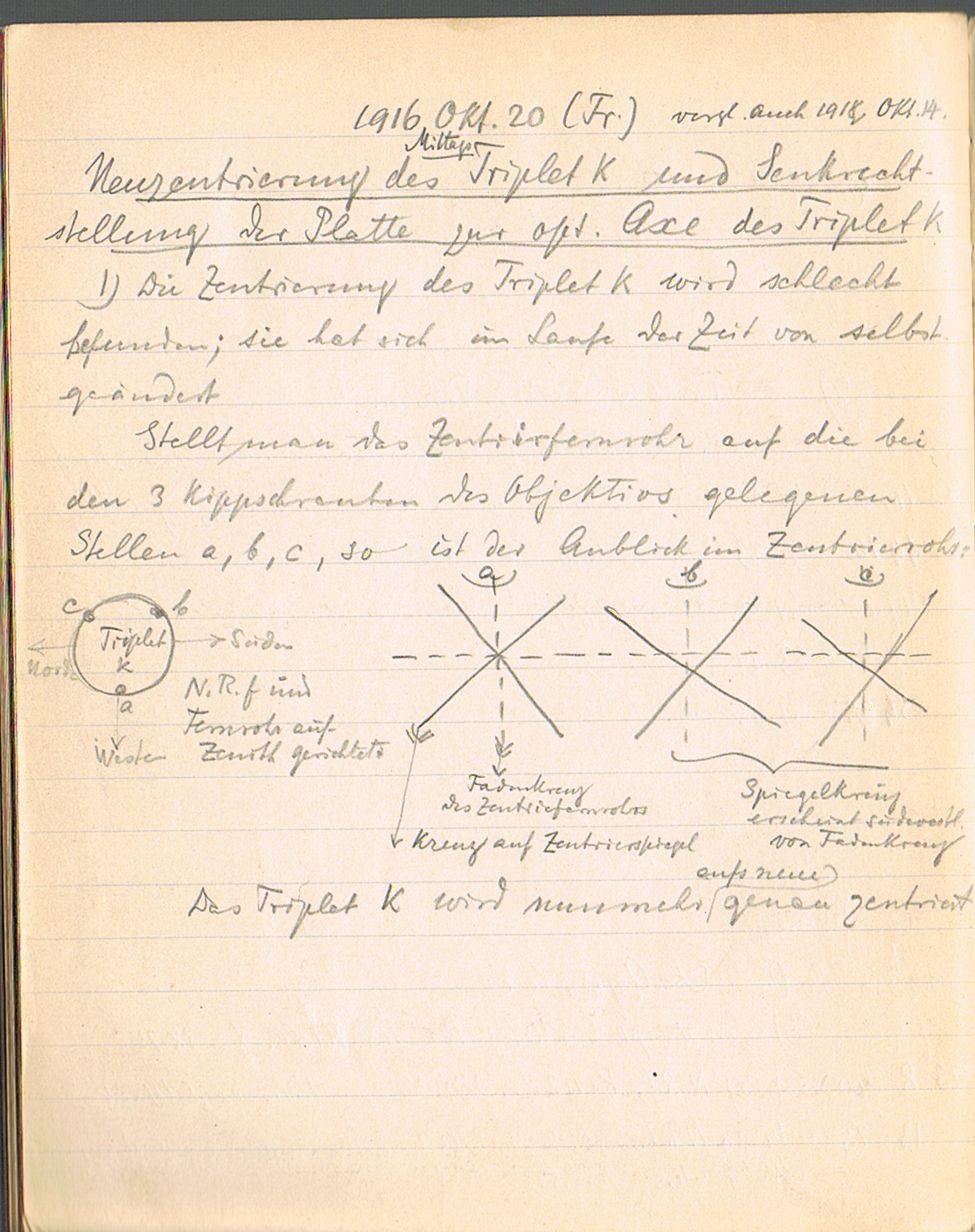 1916 Okt. 20 (Fr.) vergl. auch 1918, Okt. 14.
Mittags
Neuzentrierung des Triplet K und Senkrecht-
stellung der Platte zur opt. Axe des Triplet K
1) Die Zentrierung des Triplet K wird schlecht
befunden; sie hat sich im Laufe der Zeit von selbst
geändert
Stellt man das Zentrierfernrohr auf die bei
den 3 Kippschrauben des Objektivs gelegenen
Stellen a, b, c, so ist der Anblick im Zentrierrohr:
a b c
c b
Triplet
K
a
Nord
Süden
Westen
N. R. f und
Fernrohr auf
Zenith gerichtet
Fadenkreuz
des Zentrierfernrohrs
Kreuz auf Zentrierspiegel
Spiegelkreuz
erscheint südwestl.
von Fadenkreuz
aufs neue
Das Triplet K wird nunmehr genau zentriert